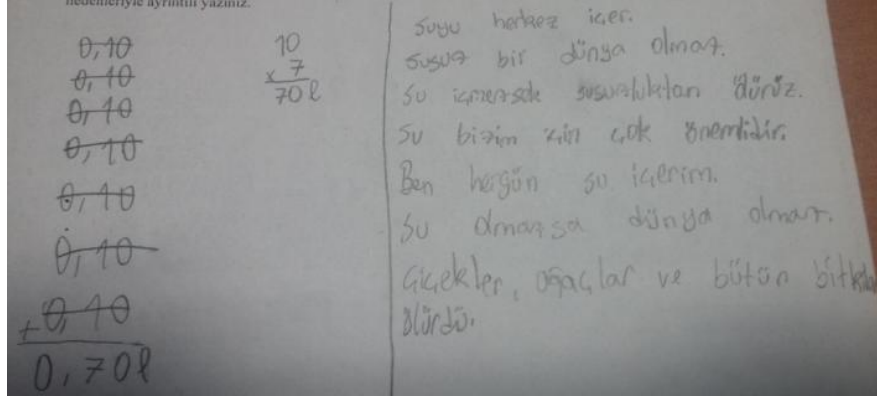 nedenleriyle ayrıntılı yazınız.
0,10
0,10
0,10
0,10
0,10
0,10
+ 0,10
0,70l
10
x 7
70l
Suyu herkez içer.
Susuz bir dünya olmaz.
Su içmezsek susuzluktan ölürüz.
Su bizim için çok önemlidir.
Ben hergün su içerim.
Su olmazsa dünya olmaz.
Çiçekler, ağaçlar ve bütün bitkiler
ölürdü.